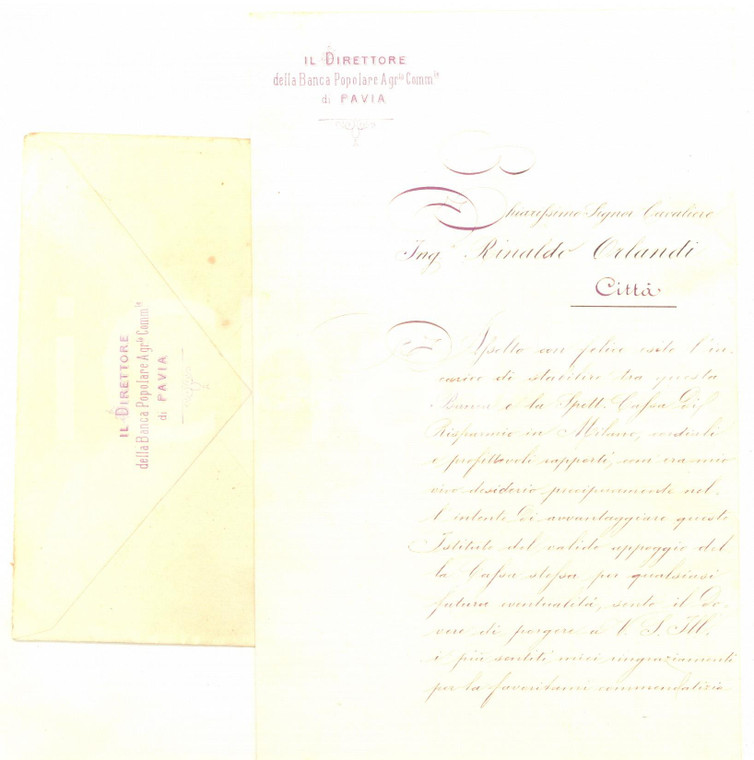 IL DIRETTORE
della Banca Popolare Agr.la Comm.le
di PAVIA
Chiarissimo Signor Cavaliere
Ing.r Rinaldo Orlandi
Città
Assolto con felice esito l'in-
carico di stabilire tra questa
Banca e la Spett. Cassa di
Risparmio in Milano, cordiali
e profittevoli rapporti, com'era mio
vivo desiderio precipuamente nel-
l'intento di avvantaggiare questo
Istituto del valido appoggio del-
la Cassa stessa per qualsiasi
futura eventualità, sento il do-
vere di porgere a V. S. Ill.
i più sentiti miei ringraziamenti
per la favoritami commendatizia
IL DIRETTORE
della Banca Popolare Agr.la Comm.le
di PAVIA